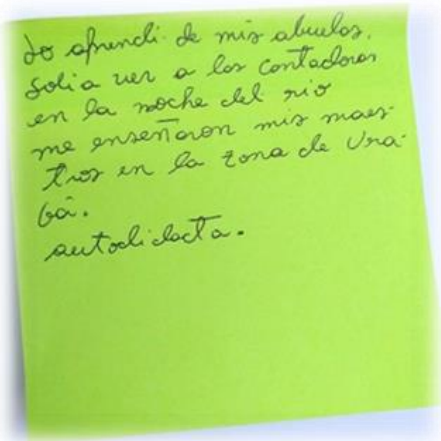 Lo aprendi de mis abuelos.
Solia ver a los contadores
en la noche del rio
me enseñaron mis maes-
tros en la zona de Ura-
bá.
autodidacta.